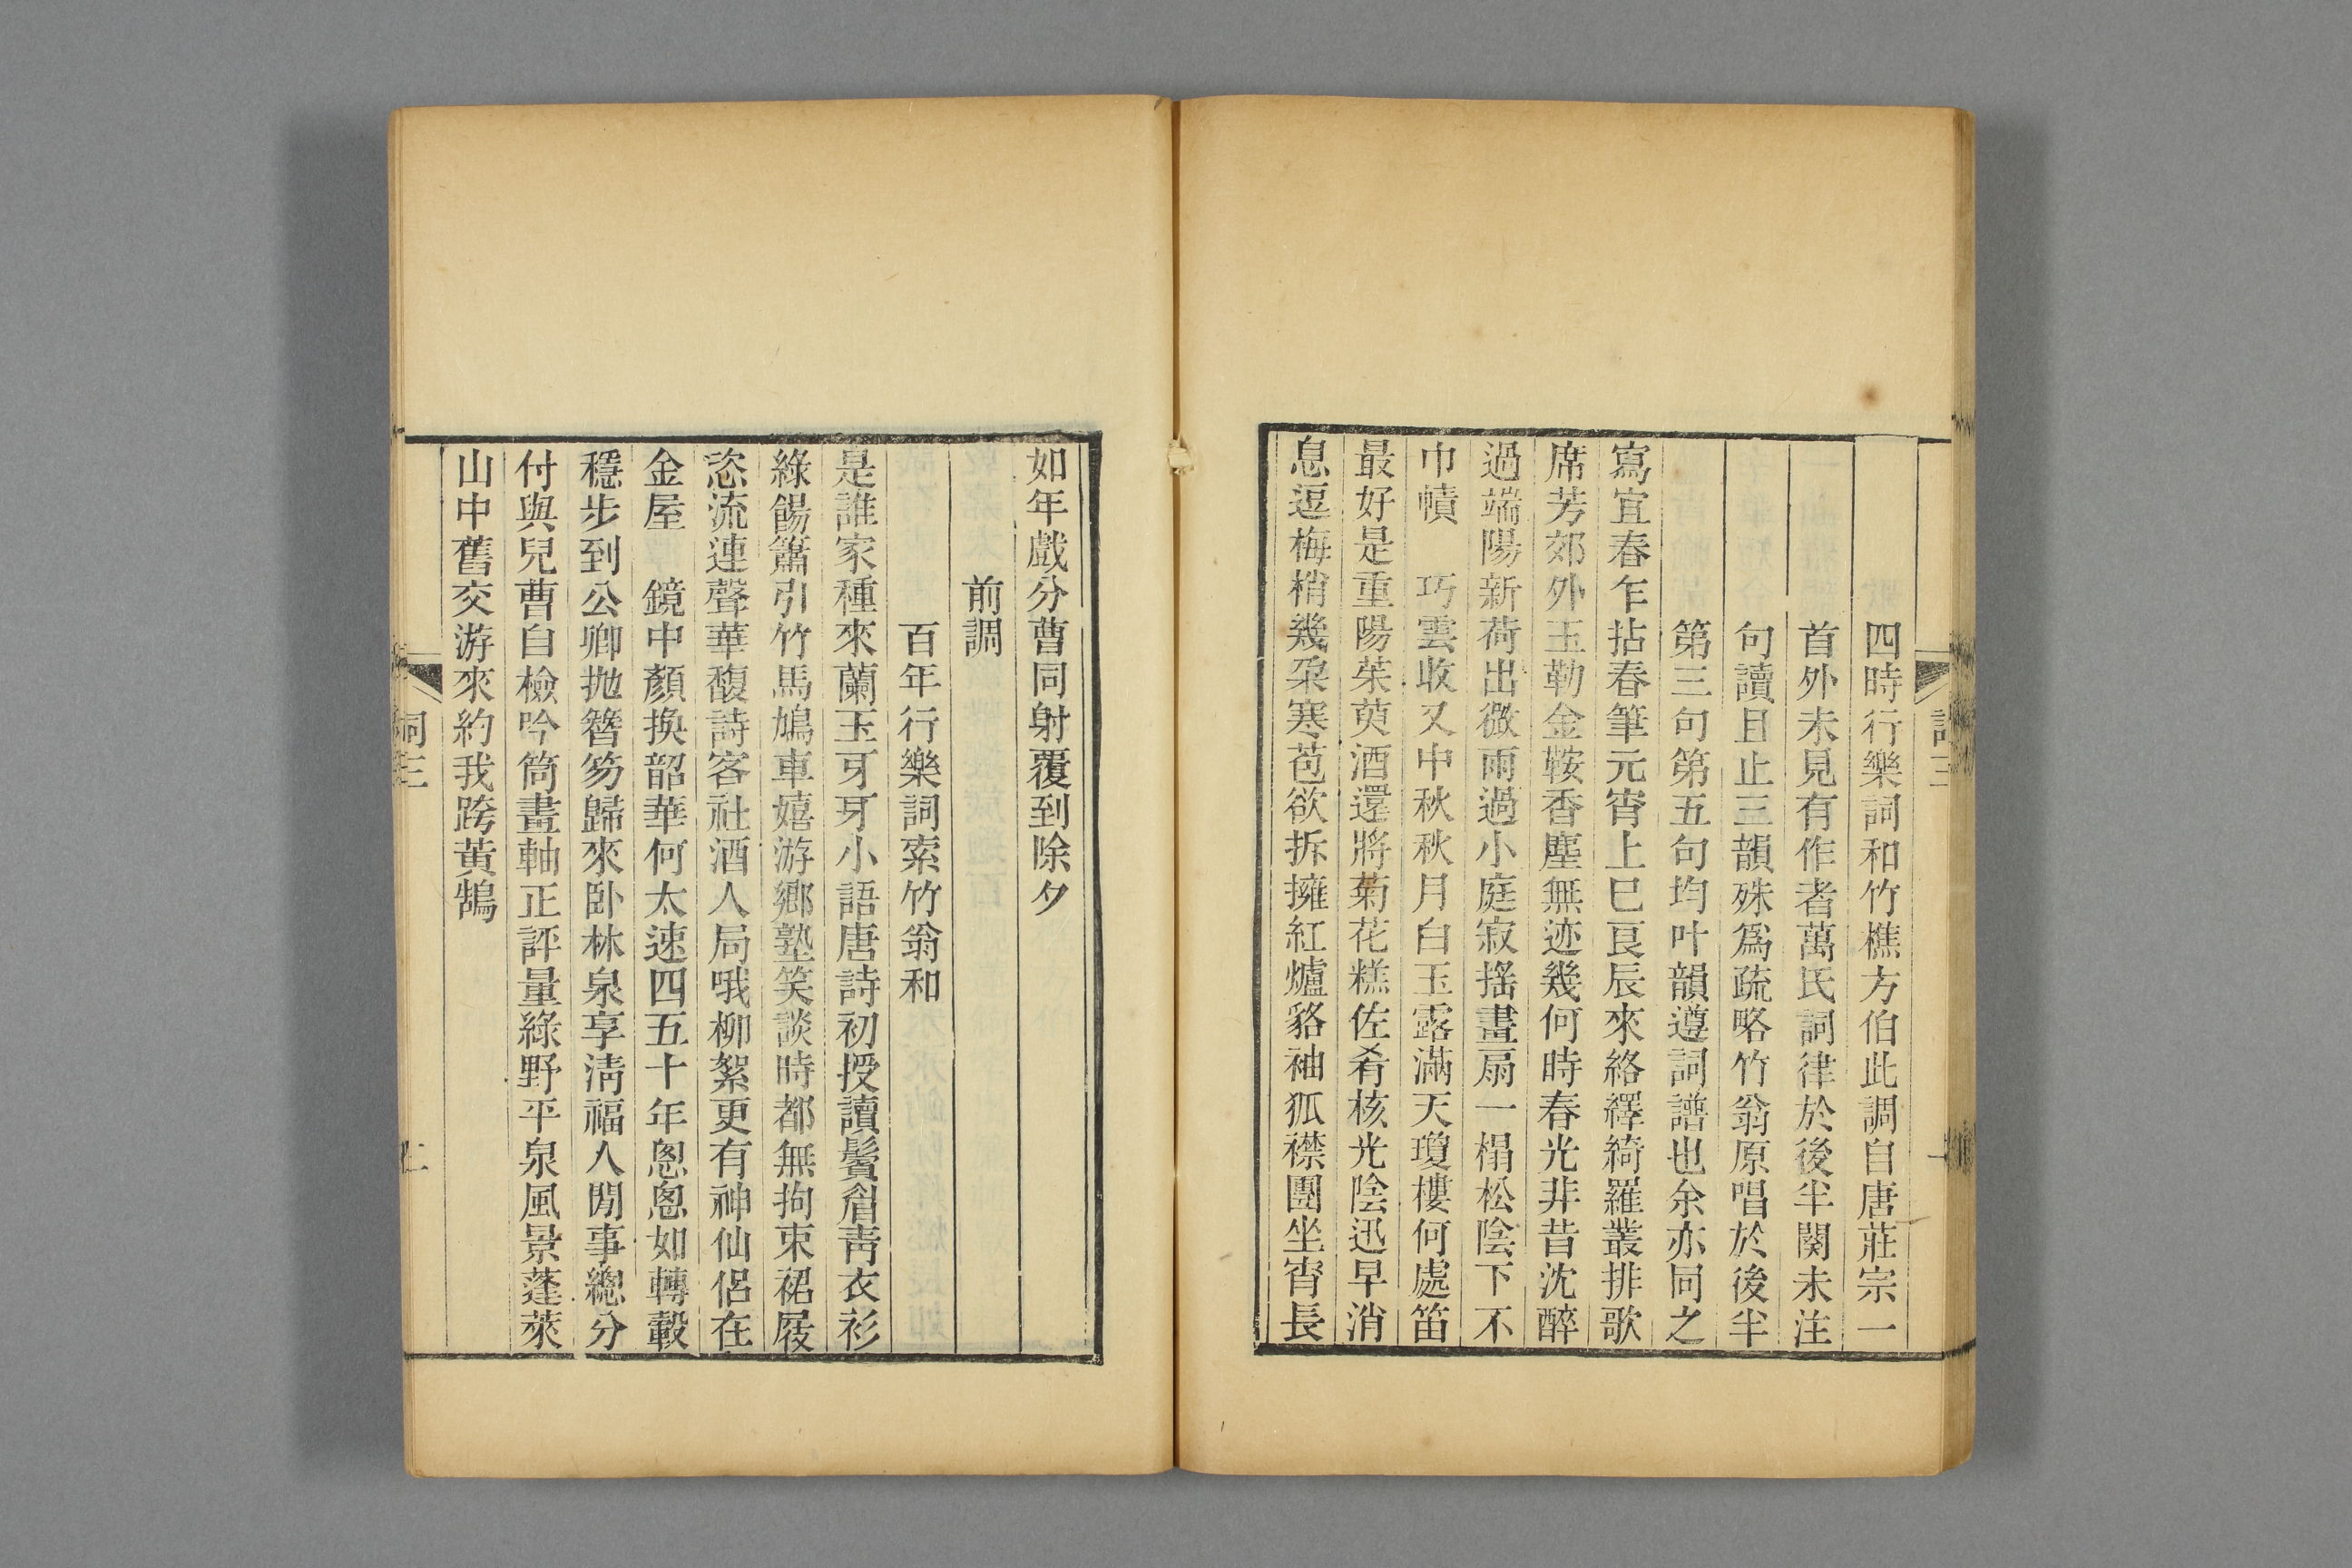 四時行樂詞和竹樵方伯此調自唐莊宗一
首外未見有作者萬氏詞律於後半闋未注
句讀且止三韻殊爲疏略竹翁原唱於後半
第三句第五句均叶韻遵詞譜也余亦同之
寫宜春乍拈春筆元宵上巳良辰來絡繹綺羅叢排歌
席芳郊外玉勒金鞍香塵無迹幾何時春光非昔沈醉
過端陽新荷出微雨過小庭寂搖畫扇一榻松陰下不
巾幘　巧雲收又中秋秋月白玉露滿天瓊樓何處笛
最好是重陽茱萸酒還將菊花糕佐肴核光陰迅早消
息逗梅梢幾朶寒苞欲拆擁紅爐貉袖狐襟團坐宵長
詞三
如年戲分曹同射覆到除夕
前調
百年行樂詞索竹翁和
是誰家種來蘭玉牙牙小語唐詩初授讀鬢眉靑衣衫
綠餳簫引竹馬鳩車嬉游鄉塾笑談時都無拘束裙屐
恣流連聲華馥詩客社酒人局哦柳絮更有神仙侶在
金屋　鏡中顏換韶華何太速四五十年恖恖如轉轂
穩步到公卿抛簪笏歸來卧林泉享淸福人閒事總分
付與兒曹自檢吟筒畫軸正評量綠野平泉風景蓬萊
山中舊交游來約我跨黃鵠
詞三